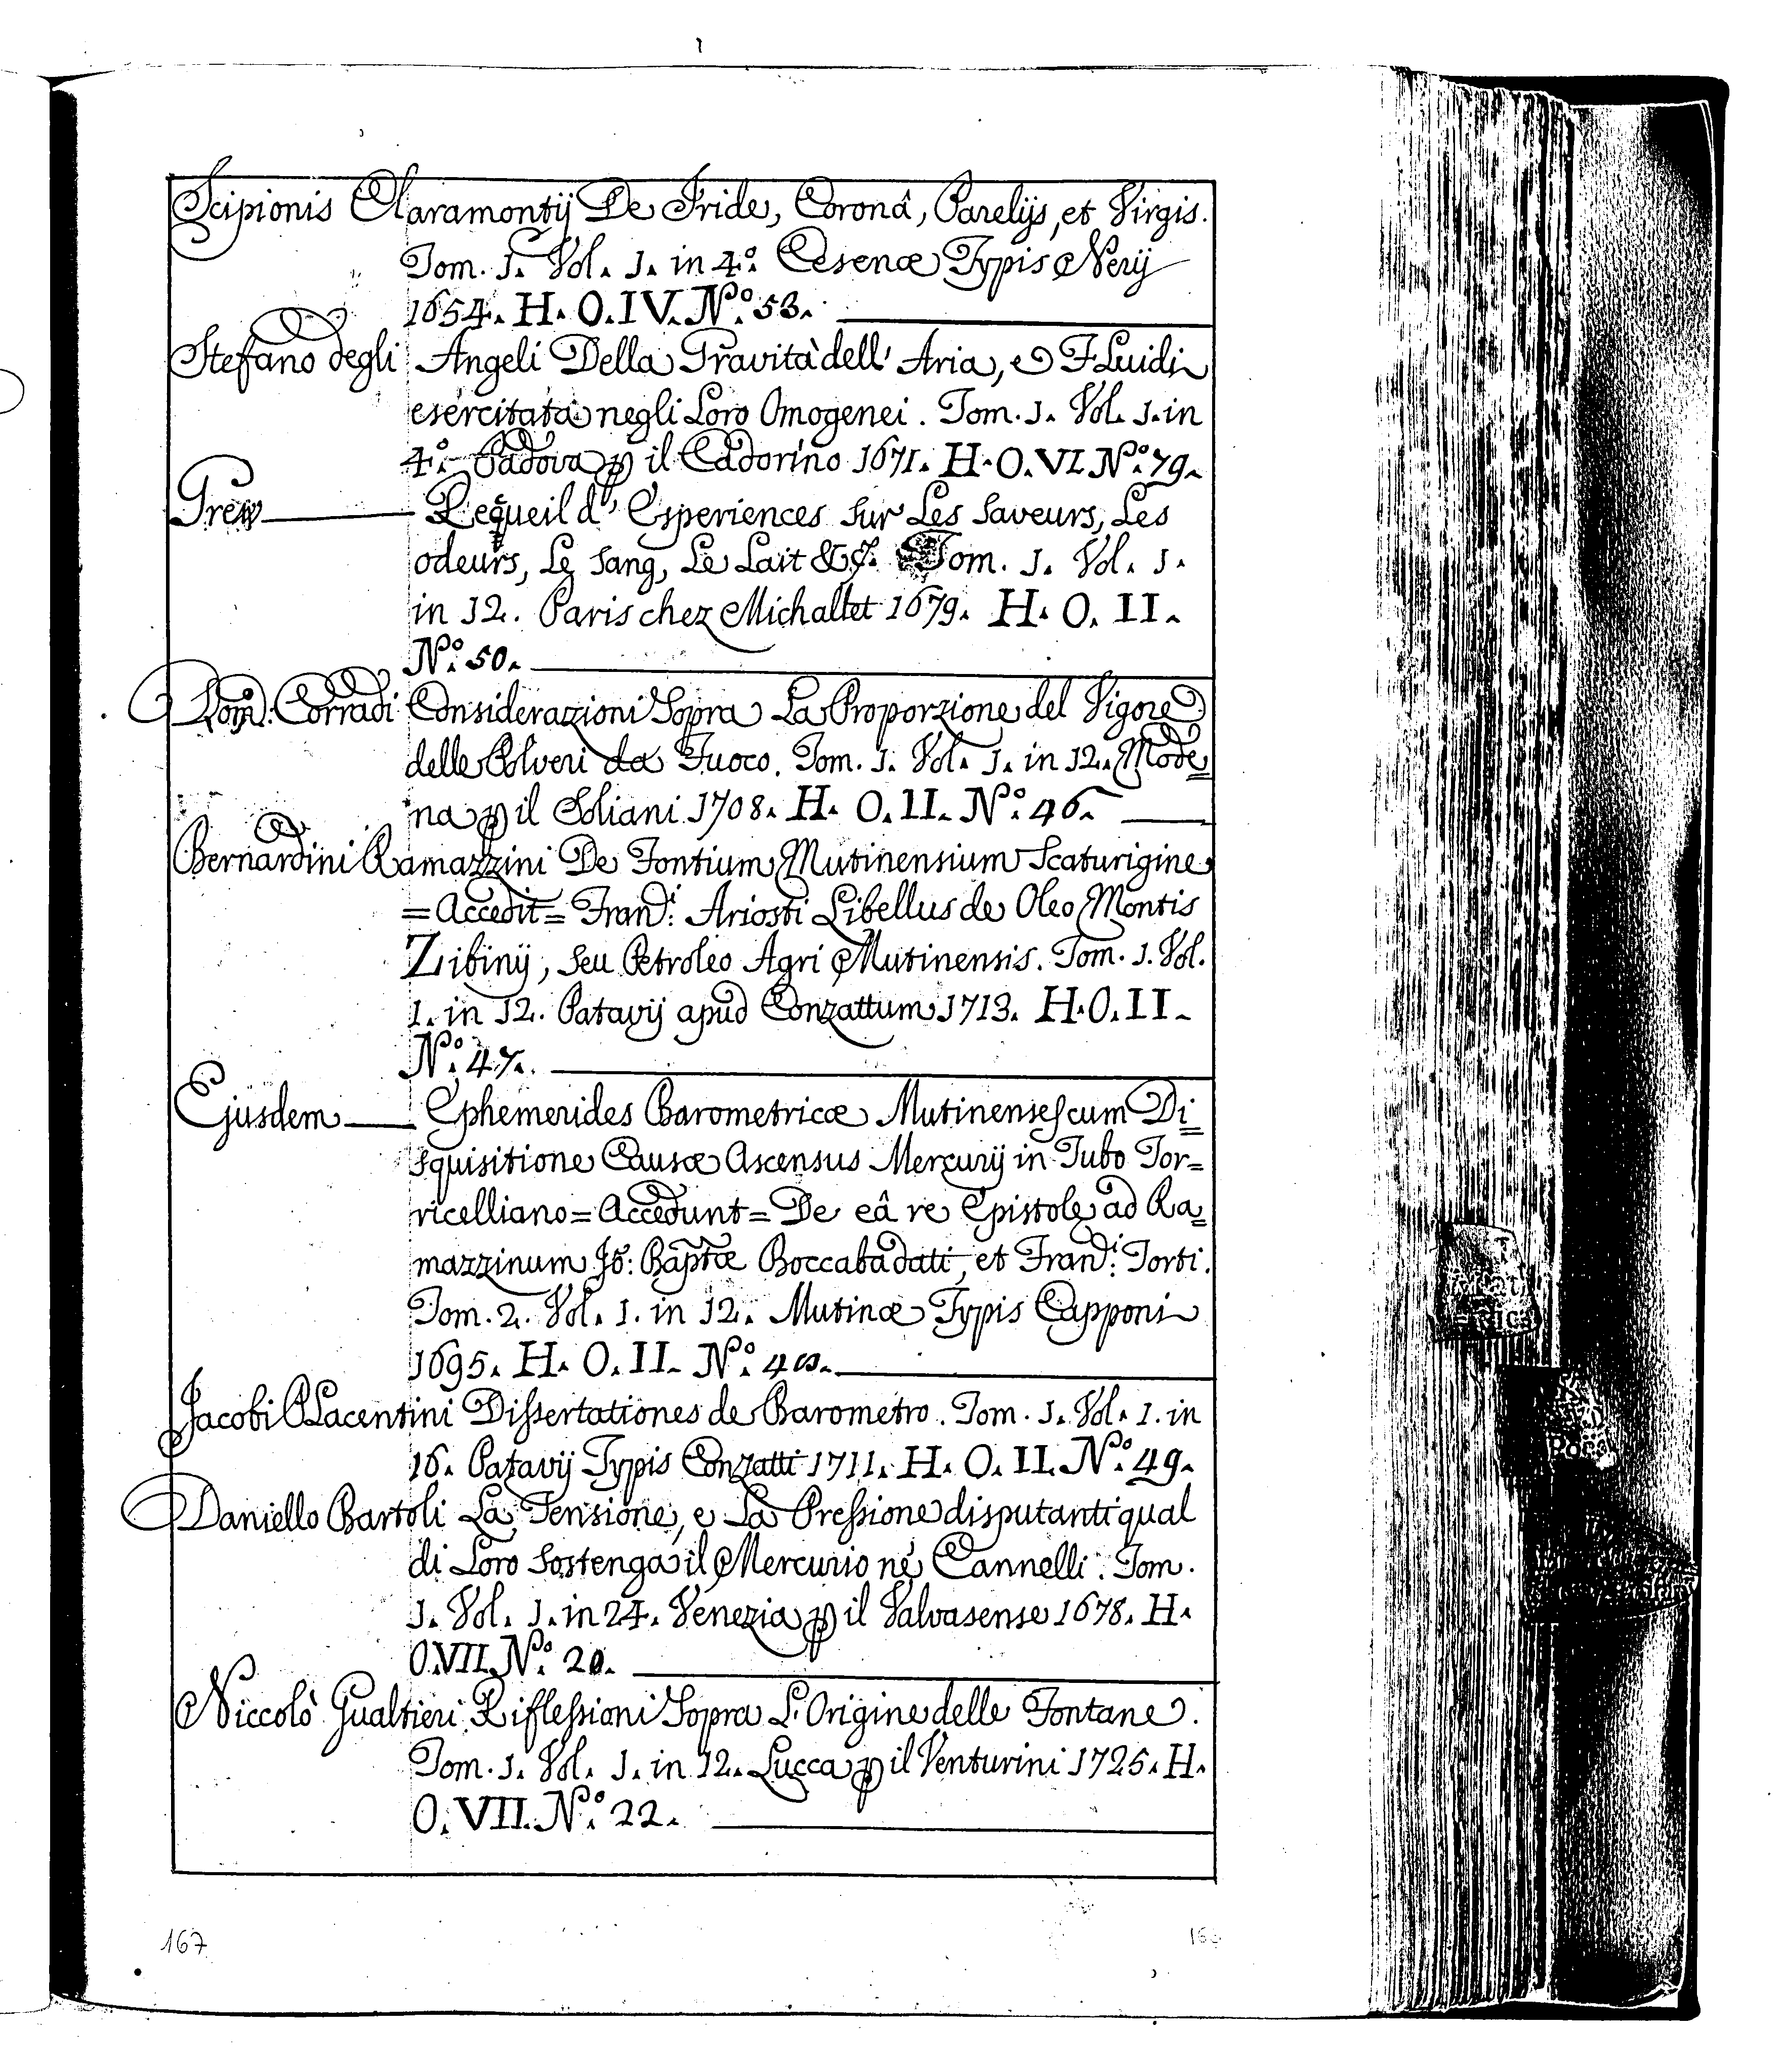 Scipionis Claramontij De Iride, Coronâ, Parelijs, et Virgis.
Tom. 1. Vol. 1. in 4.º Cesenæ Typis Nerij
1654. H. O. IV. N.º 53.
Stefano degli Angeli Della Gravità dell' Aria, e Fluidi
esercitata negli Loro Omogenei. Tom. 1. Vol. 1. in
4.º Padova ꝑ il Cadorino 1671. H. O. VI. N.º 79.
Grew Requeil d' Esperiences sur Les Saveurs, Les
odeurs, Le Sang, Le Lait &c. Tom. 1. Vol. 1.
in 12. Paris chez Michallet 1679. H. O. II.
N.º 50.
Dom. Corradi Considerazioni Sopra La Proporzione del Vigore
delle Polveri da Fuoco. Tom. 1. Vol. 1. in 12. Mode=
na ꝑ il Soliani 1708. H. O. II. N.º 46.
Bernardini Ramazzini De Fontium Mutinensium Scaturigine
=Accedit= Fran.ci Ariosti Libellus de Oleo Montis
Zibinij, seu Petroleo Agri Mutinensis. Tom. 1. Vol.
1. in 12. Patavij apud Conzattum 1713. H. O. II.
N.º 47.
Ejusdem Ephemerides Barometricæ Mutinenses cum Di=
squisitione Causæ Ascensus Mercurij in Tubo Tor=
ricelliano=Accedunt= De eâ re Epistole ad Ra=
mazzinum Jo: Baptæ Boccabadati, et Fran.ci Torti.
Tom. 2. Vol. 1. in 12. Mutinæ Typis Capponi
1695. H. O. II. N.º
Jacobi Placentini Dissertationes de Barometro. Tom. 1. Vol. 1. in
16. Patavij Typis Conzatti 1711. H. O. II. N.º 49.
Daniello Bartoli La Tensione, e La Pressione disputanti qual
di Loro Sostenga il Mercurio ne' Cannelli. Tom.
1. Vol. 1. in 24. Venezia ꝑ il Valvasense 1678. H.
O. VII. N.º 20.
Niccolò Gualtieri Riflessioni Sopra L'Origine delle Fontane.
Tom. 1. Vol. 1. in 12. Lucca ꝑ il Venturini 1725. H.
O. VII. N.º 22.
167